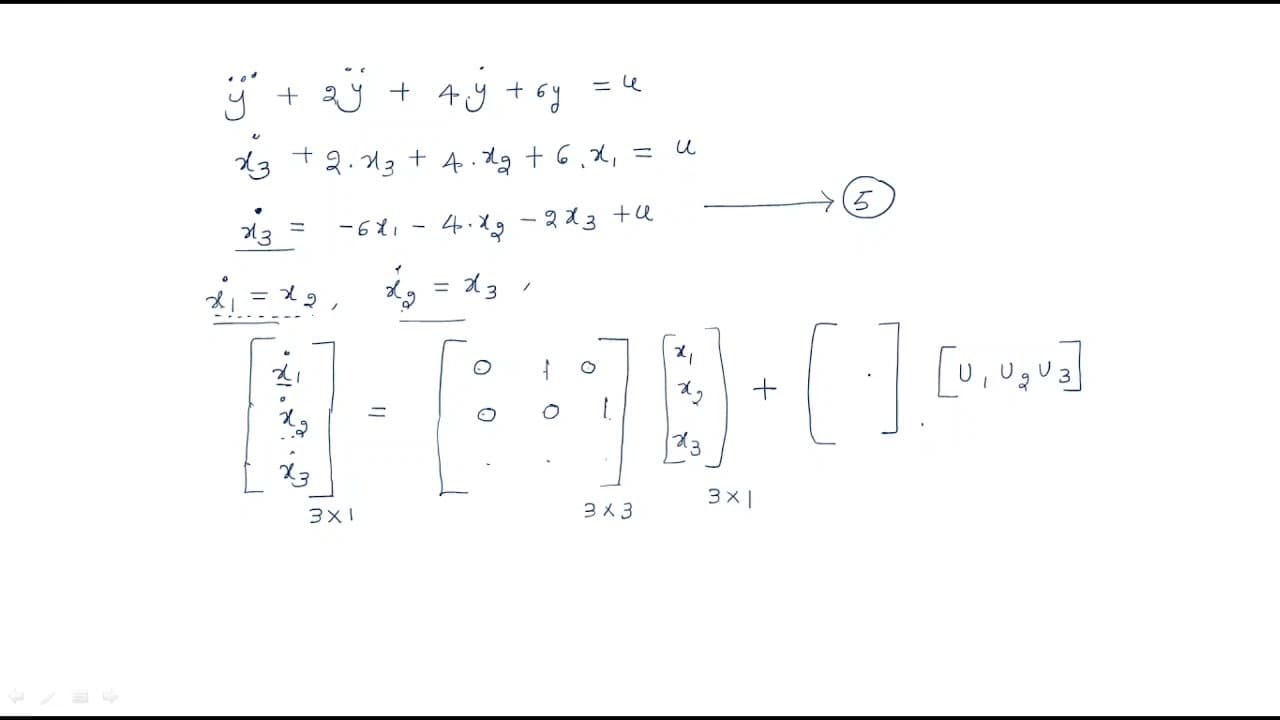 y⃛ + 2ÿ + 4ẏ + 6y = u
ẋ₃ + 2.x₃ + 4.x₂ + 6.x₁ = u
ẋ₃ = -6x₁ - 4.x₂ - 2x₃ + u ⟶ ⑤
ẋ₁ = x₂, ẋ₂ = x₃,
[ẋ₁ ẋ₂ ẋ₃] = [0 1 0 0 0 1 . . ] [x₁ x₂ x₃] + [ . ] . [U₁ U₂ U₃]
3×1 3×3 3×1